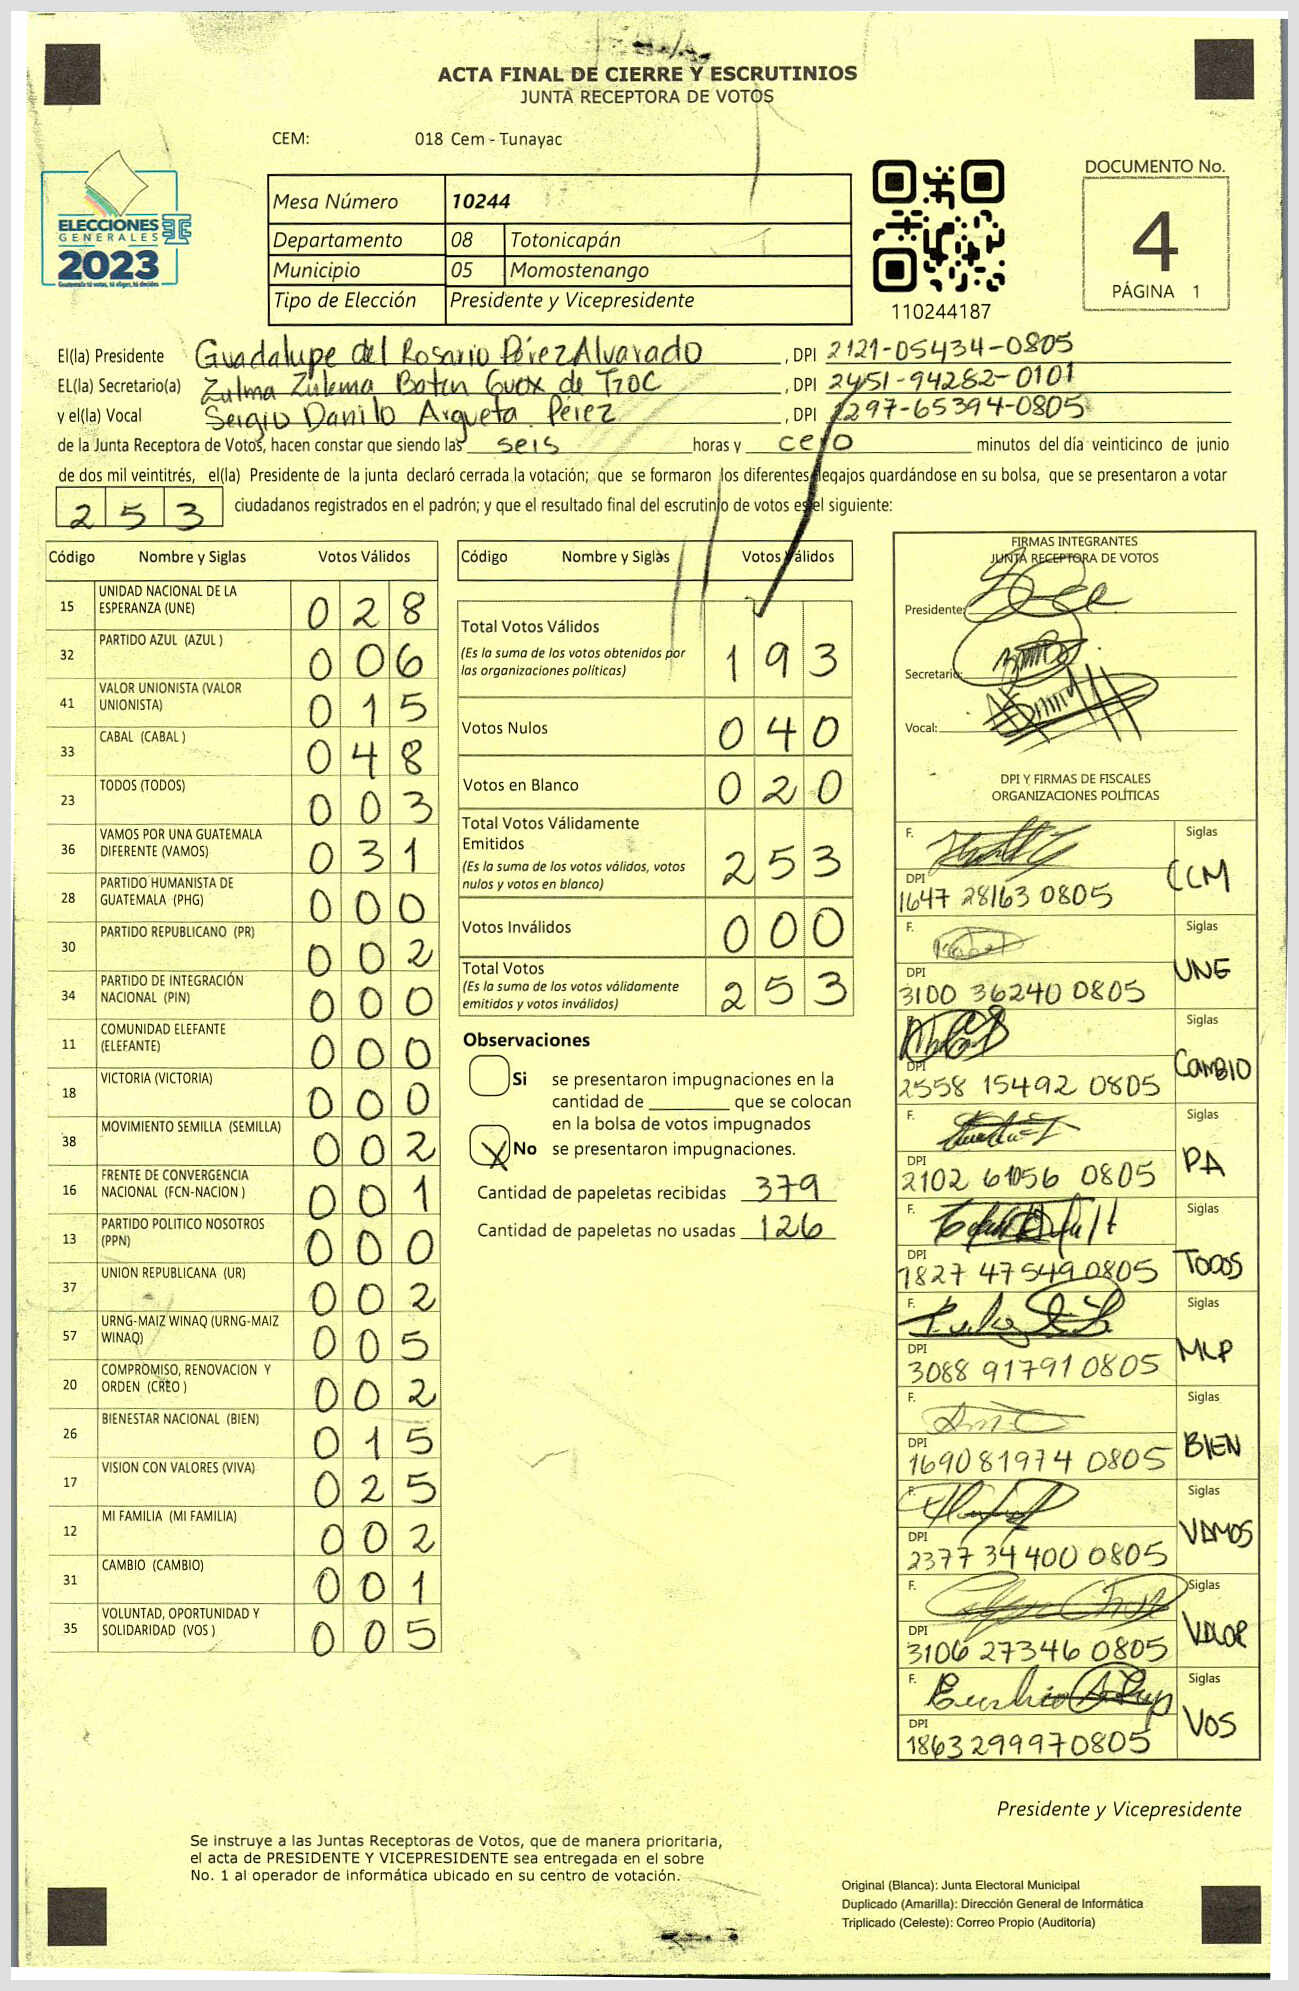 ACTA FINAL DE CIERRE Y ESCRUTINIOS
JUNTA RECEPTORA DE VOTOS
CEM: 018 Cem - Tunayac
DOCUMENTO No.
4
PÁGINA 1
ELECCIONES
GENERALES
2023
Guatemala tú votas, tú eliges, tú decides
Mesa Número 10244
Departamento 08 Totonicapán
Municipio 05 Momostenango
Tipo de Elección Presidente y Vicepresidente
110244187
El(la) Presidente Guadalupe del Rosario Pérez Alvarado, DPI 2121-05434-0805
EL(la) Secretario(a) Zulma Zulema Baten Guox de Tzoc, DPI 2451-94282-0101
y el(la) Vocal Sergio Danilo Argueta Pérez, DPI 2297-65394-0805
de la Junta Receptora de Votos, hacen constar que siendo las seis horas y cero minutos del día veinticinco de junio
de dos mil veintitrés, el(la) Presidente de la junta declaró cerrada la votación; que se formaron los diferentes legajos guardándose en su bolsa, que se presentaron a votar
253 ciudadanos registrados en el padrón; y que el resultado final del escrutinio de votos es el siguiente:
Código Nombre y Siglas Votos Válidos
15 UNIDAD NACIONAL DE LA
ESPERANZA (UNE) 028
32 PARTIDO AZUL (AZUL ) 006
41 VALOR UNIONISTA (VALOR
UNIONISTA) 015
33 CABAL (CABAL ) 048
23 TODOS (TODOS) 003
36 VAMOS POR UNA GUATEMALA
DIFERENTE (VAMOS) 031
28 PARTIDO HUMANISTA DE
GUATEMALA (PHG) 000
30 PARTIDO REPUBLICANO (PR) 002
34 PARTIDO DE INTEGRACIÓN
NACIONAL (PIN) 000
11 COMUNIDAD ELEFANTE
(ELEFANTE) 000
18 VICTORIA (VICTORIA) 000
38 MOVIMIENTO SEMILLA (SEMILLA) 002
16 FRENTE DE CONVERGENCIA
NACIONAL (FCN-NACION ) 001
13 PARTIDO POLITICO NOSOTROS
(PPN) 000
37 UNION REPUBLICANA (UR) 002
57 URNG-MAIZ WINAQ (URNG-MAIZ
WINAQ) 005
20 COMPROMISO, RENOVACION Y
ORDEN (CREO ) 002
26 BIENESTAR NACIONAL (BIEN) 015
17 VISION CON VALORES (VIVA) 025
12 MI FAMILIA (MI FAMILIA) 002
31 CAMBIO (CAMBIO) 001
35 VOLUNTAD, OPORTUNIDAD Y
SOLIDARIDAD (VOS ) 005
Código Nombre y Siglas Votos Válidos
Total Votos Válidos
(Es la suma de los votos obtenidos por
las organizaciones políticas) 193
Votos Nulos 040
Votos en Blanco 020
Total Votos Válidamente
Emitidos
(Es la suma de los votos válidos, votos
nulos y votos en blanco) 253
Votos Inválidos 000
Total Votos
(Es la suma de los votos válidamente
emitidos y votos inválidos) 253
Observaciones
Si se presentaron impugnaciones en la
cantidad de ________ que se colocan
en la bolsa de votos impugnados
X No se presentaron impugnaciones.
Cantidad de papeletas recibidas 379
Cantidad de papeletas no usadas 126
FIRMAS INTEGRANTES
JUNTA RECEPTORA DE VOTOS
Presidente:
Secretario:
Vocal:
DPI Y FIRMAS DE FISCALES
ORGANIZACIONES POLÍTICAS
F. Siglas
DPI CCM
1647 28163 0805
F. Siglas
DPI UNE
3100 36240 0805
Siglas
DPI CAMBIO
2558 15492 0805
F. Siglas
DPI PA
2102 61056 0805
F. Siglas
DPI TODOS
1827 47549 0805
F. Siglas
DPI MLP
3088 91791 0805
F. Siglas
DPI BIEN
1690 81974 0805
F. Siglas
DPI VAMOS
2377 34400 0805
F. Siglas
DPI VALOR
3106 27346 0805
F. Siglas
DPI VOS
1863 29997 0805
Presidente y Vicepresidente
Se instruye a las Juntas Receptoras de Votos, que de manera prioritaria,
el acta de PRESIDENTE Y VICEPRESIDENTE sea entregada en el sobre
No. 1 al operador de informática ubicado en su centro de votación.
Original (Blanca): Junta Electoral Municipal
Duplicado (Amarilla): Dirección General de Informática
Triplicado (Celeste): Correo Propio (Auditoría)